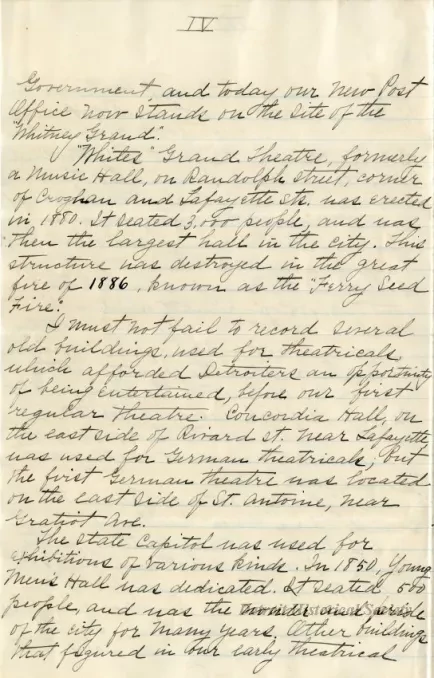 IV
Government and today our New Post
Office now stands on the site of the
"Whitney Grand".
"Whites" Grand Theatre, formerly
a Music Hall, on Randolph Street, corner
of Croghan and Lafayette Sts. was erected
in 1880. It seated 3,000 people, and was
then the largest hall in the city. This
structure was destroyed in the great
fire of 1886, known as the "Ferry Seed
Fire".
I must not fail to record several
old buildings, used for theatricals
which afforded Detroiters an opportunity
of being entertained, before our first
regular theatre. Concordia Hall, on
the east side of Rivard St. near Lafayette
was used for German theatricals; but
the first German theatre was located
on the east side of St. Antoine, near
Gratiot Ave.
The State Capitol was used for
exhibitions of various kinds. In 1850, Young
Men's Hall was dedicated. It seated 500
people, and was the wonder and pride
of the city for many years. Other buildings
that figured in our early theatrical